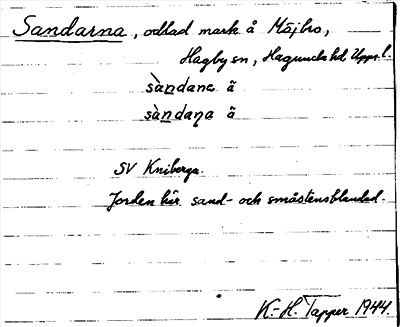 Sandarna, odlad mark å Mojbro,
Hagby sn, Hagunda hd, Upps. l.
sàndanɐ ä
sàndaɳa ä
SV Kniberga.
Jorden här sand- och småstensblandad.
K.-H. Tapper 1944.